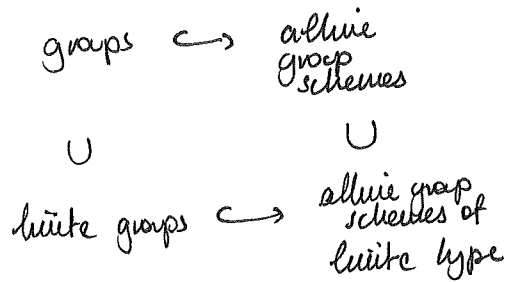 groups ↪ affine
group
schemes
∪ ∪
finite groups ↪ affine group
schemes of
finite type